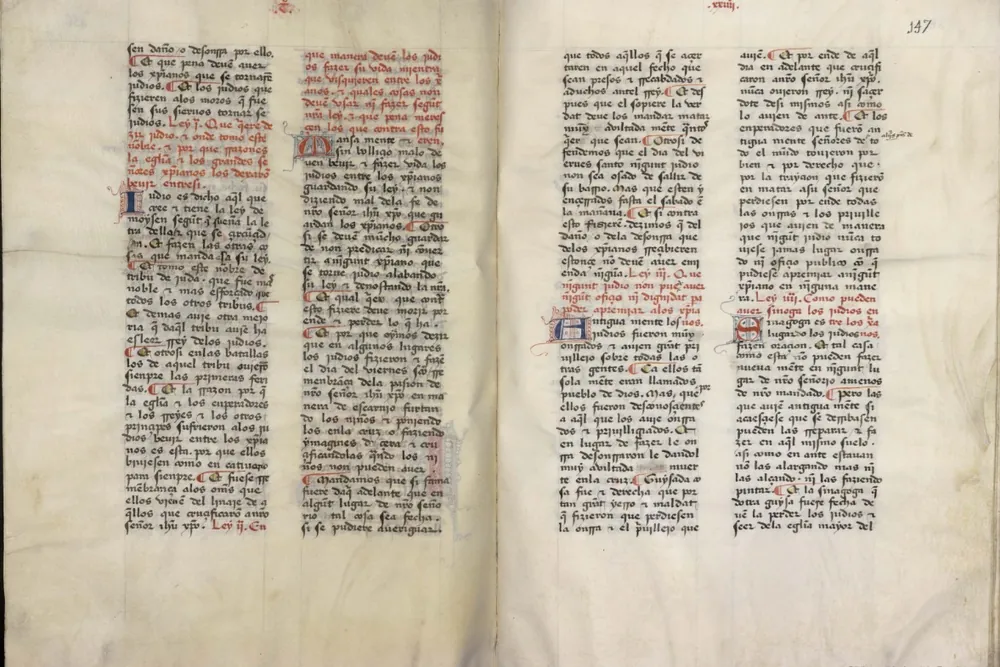 .xxiiij.
147
sen daño / o desonrra por ello.
¶ Et que pena deuẽ auer
los xpianos que se tornarẽ
judios. ¶ Et los judios que
fizieren alos moros q̃ fue
sen sus sieruos tornar se
judios. Ley .j. Que q̃ere de
zir judio. ⁊ onde tomo este
nobre. ⁊ por que razones
la eglĩa ⁊ los grandes se
ñores xpianos los dexarõ
beuir entresi.
Iudio es dicho aq̃l que
cree ⁊ tiene la ley de
moysen segũt q̃ suena la le
tra della ⁊ que se çircũçi
da. Et fazen las otras co
sas que manda esta su ley.
¶ Et tomo este nobre de
tribu de juda. que fue mas
noble ⁊ mas esforçado que
todos los otros tribus. ¶
Et demas auie otra mejo
ria q̃ daq̃l tribu auie ha
esleer rrey delos judios.
¶ Et otrosi enlas batallas
los de aquel tribu ouierõ
sienpre las primeras feri
das. ¶ Et la rrazon por q̃
la eglĩa ⁊ los enperadores
⁊ los rreyes ⁊ los otros
prinçipes sufrieron alos ju
dios beuir entre los xpia
nos es esta. por que ellos
biuiesen como en catiuerio
pora sienpre. ¶ Et fuese rre
menbrança alos om̃s que
ellos vienẽ del linaje de a
q̃llos que cruçificarõ anr̃o
señor ihũ xp̃o. Ley .ij. En
que manera deuẽ los judi
os fazer su vida mientra
que visquieren entre los x̃
anos. ⁊ quales cosas non
deuẽ vsar nĩ fazer segũt
nr̃a ley. ⁊ que pena meres
çen los que contra esto fi
zieren.
Mansa mente ⁊
sin bolliçio malo de
uen beuir ⁊ fazer vida los
judios entre los xpianos
guardando su ley. ⁊ non
diziendo mal dela fe de
nr̃o señor ihũ xp̃o que gu
ardan los xpianos. ¶ Otro
si se deuẽ mucho guardar
de non predicar nĩ cõuer
tir a nĩgunt xpiano que
se torne judio alabando
su ley ⁊ denostando la nr̃a.
¶ Et qual q̃er que contra
esto fiziere deue morir por
ende ⁊ perder lo q̃ ha.
¶ Et por que oymos dezir
que en algunos lugares
los judios fizieron ⁊ fazẽ
el dia del viernes sco rre
menbrãça dela pasion de
nr̃o señor ihũ xp̃o en ma
nera de escarnio furtan
do los niños ⁊ poniendo
los enla cruz / o faziendo
ymagines de çera ⁊ cru
çificandolas q̃ndo los ni
ños non pueden auer.
¶ Mandamos que si fama
fuere daq̃ adelante que en
algũt lugar de nr̃o seño
rio tal cosa sea fecha.
si se pudiere aueriguar.
que todos aq̃llos q̃ se açer
taren en aquel fecho que
sean presos ⁊ rrecabdados ⁊
aduchos antel rrey. ¶ Et des
pues que el sopiere la ver
dad deue los mandar matar
muy auiltada mẽte q̃ntos
q̃er que sean. ¶ Otrosi de
fendemos que el dia del vi
ernes santo nĩgunt judio
non sea osado de sallir de
su barrio. Mas que esten y
ençerrados fasta el sabado ẽ
la mañana. ¶ Et si contra
esto fizierẽ. dezimos q̃ del
daño / o dela desonrra que
delos xpianos rreçibieren
estonçe nõ deuẽ auer em̃
enda nĩgũa. Ley .iij. Que
nĩgunt judio non pued̃ auer
nĩgũt ofiçio nĩ dignidat pa
poder apremiar alos xpia
nos.
Antigua mente los
judios fueron muy
onrrados ⁊ auien grãt pri
uillejo sobre todas las o
tras gentes. ¶ Ca ellos tã
sola mẽte eran llamados
pueblo de dios. Mas por
que
ellos fueron desconosçientes
a aq̃l que los auie onrra
dos ⁊ priuilligiados. Et
en lugar de fazer le on
rra desonrraron le dandol
muy auiltada muer
te enla cruz. ¶ Guisada co
sa fue ⁊ derecha que por
tan grãt yerro ⁊ maldat
q̃ fizieron que perdiesen
la onrra ⁊ el p̃uillejo que
auiẽ. ¶ Et por ende de aq̃l
dia en adelante que cruçifi
caron anr̃o señor ihũ xp̃o.
nũca ouieron rrey. nĩ saçer
dote desi mismos asi como
lo auien de ante. ¶ Et los
enperadores que fuerõ an
tigua mente señores de to
do el mũdo touieron por
bien ⁊ por derecho que.
por la trayçion que fizierõ
en matar asu señor que
perdiesen por ende todas
las onrras ⁊ los priuille
jos que auien de manera
que nĩgũt judio nũca to
uiese jamas lugar onrra
do nĩ ofiçio publico cõ q̃
pudiese apremiar anĩgũt
xpiano en nĩguna mane
ra. Ley .iiij. Como pueden
auer sinoga los judios en
tre los xp̃ianos.
Sinagoga es
lugar do los judios
fazen oraçion. Et tal casa
como esta nõ pueden fazer
nueua mẽte en nĩgunt lu
gar de nr̃o señorio amenos
de nr̃o mandado. ¶ Pero las
que auiẽ antigua mẽte si
acaesçiese que se derribasen
pueden las rreparar ⁊ fa
zer en aq̃l mismo suelo.
asi como en ante estauan
nõ las alargando mas nĩ
las alçando. nĩ las faziendo
pintar. ¶ Et la sinagoga q̃
dotra guysa fuese fecha de
uẽ la perder los judios ⁊
seer dela eglĩa mayor del